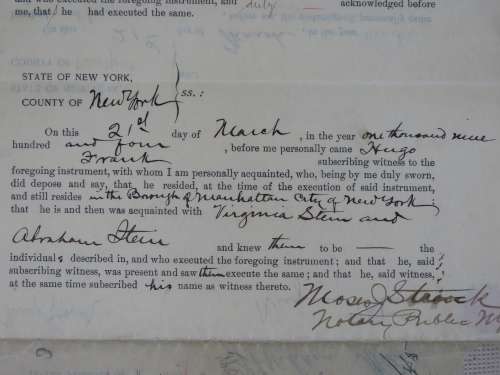 who executed the foregoing instrument, and duly acknowledged before
me, that he had executed the same.
STATE OF NEW YORK,
COUNTY OF New York ss.:
On this 21st day of March, in the year one thousand nine
hundred and four, before me personally came Hugo
Frank subscribing witness to the
foregoing instrument, with whom I am personally acquainted, who, being by me duly sworn,
did depose and say, that he resided, at the time of the execution of said instrument,
and still resides in the Borough of Manhattan City of New York
that he is and then was acquainted with Virginia Stein and
Abraham Stein and knew them to be — the
individuals described in, and who executed the foregoing instrument; and that he, said
subscribing witness, was present and saw them execute the same; and that he, said witness,
at the same time subscribed his name as witness thereto.
Moses J
Notary Public